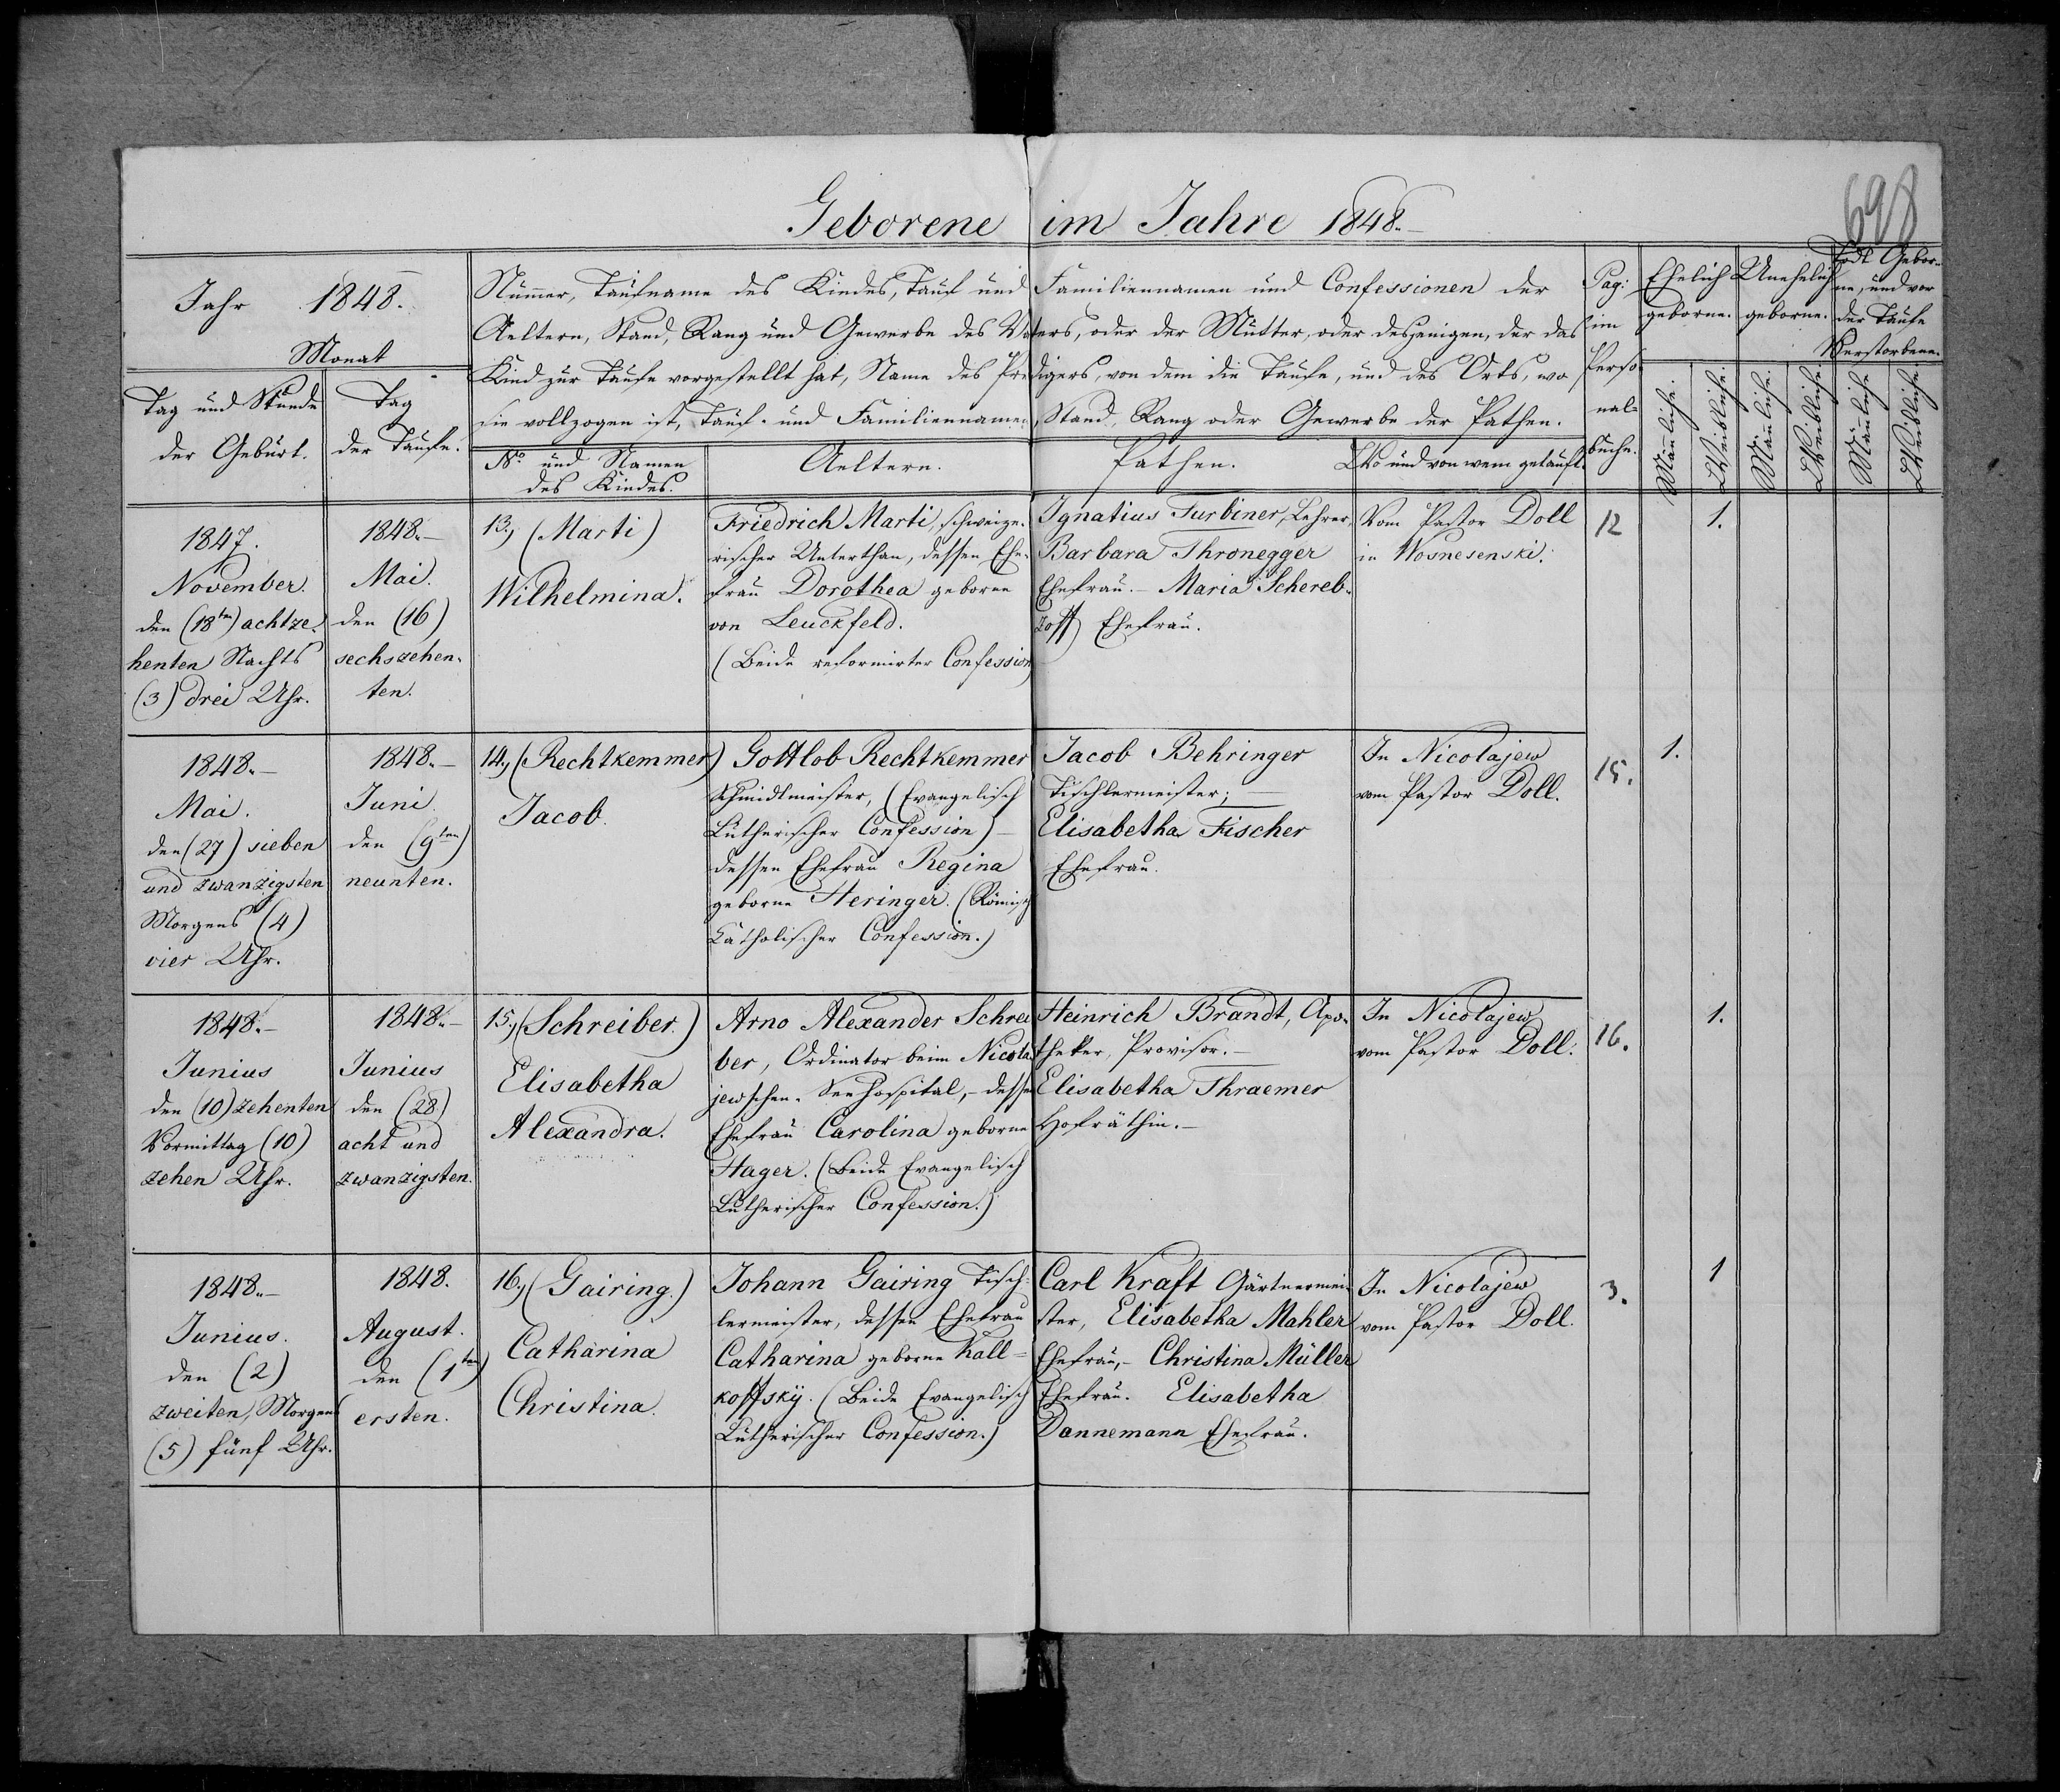 698
Geborene im Jahre 1848.
Jahr 1848.
Monat
Tag und Stunde
der Geburt.
Tag
der Taufe.
Num̄er, Taufname des Kindes, Tauf und Familiennamen und Confessionen der
Aeltern, Stand, Rang und Gewerbe des Vaters, oder der Mutter, oder desjenigen, der das
Kind zur Taufe vorgestellt hat, Name des Predigers, von dem die Taufe, und des Orts, wo
sie vollzogen ist, Tauf- und Familiennamen, Stand, Rang oder Gewerbe der Pathen.
No und Namen
des Kindes.
Aeltern.
Pathen.
Wo und von wem getauft.
Pag:
im
Perso-
nal-
buche.
Ehelich
geborne.
Unehelich
geborne.
Todt Gebor-
ne, und vor
der Taufe
Verstorbene.
Män̄liche.
Weibliche.
Män̄liche.
Weibliche.
Män̄liche
Weibliche
1847.
November.
den (18ten) achtze-
henten Nachts
(3) drei Uhr.
1848.
Mai.
den (16)
sechszehen-
ten.
13., (Marti)
Wilhelmina.
Friedrich Marti, schweize-
rischer Unterthan, dessen Ehe-
frau Dorothea geborne
von Leuckfeld.
(Beide reformirter Confession)
Ignatius Turbiner, Lehrer,
Barbara Thronegger
Ehefrau. Maria Schereb-
zoff Ehefrau.
Vom Pastor Doll
in Wosnesenski.
12
1.
1848.
Mai.
den (27) sieben
und zwanzigsten
Morgens (4)
vier Uhr.
1848.
Juni
den (9ten)
neunten.
14., (Rechtkemmer)
Jacob.
Gottlob Rechtkemmer
Schmidtmeister, (Evangelisch
Lutherischer Confession)
dessen Ehefrau Regina
geborne Heringer. (Römisch
Katholischer Confession.)
Jacob Behringer
Tischlermeister;
Elisabetha Fischer
Ehefrau.
In Nicolajew
vom Pastor Doll.
15.
1.
1848.
Junius
den (10) zehenten
Vormittag (10)
zehen Uhr.
1848.
Junius
den (28)
acht und
zwanzigsten.
15., (Schreiber.)
Elisabetha
Alexandra.
Arno Alexander Schrei-
ber, Ordinator beim Nicola-
jewschen Seehospital, dessen
Ehefrau Carolina geborne
Hager. (Beide Evangelisch
Lutherischer Confession.)
Heinrich Brandt, Apo-
theker, Provisor.
Elisabetha Thraemer
Hofräthin.
In Nicolajew
vom Pastor Doll.
16.
1.
1848.
Junius.
den (2)
zweiten, Morgens
(5) fünf Uhr.
1848.
August.
den (1ten)
ersten.
16., (Gairing.)
Catharina
Christina.
Johann Gairing Tisch-
lermeister, dessen Ehefrau
Catharina geborne Kall=
koffsky. (Beide Evangelisch
Lutherischer Confession.)
Carl Kraft Gärtnermei-
ster, Elisabetha Mahler
Ehefrau, Christina Müller
Ehefrau. Elisabetha
Dannemann Ehefrau.
In Nicolajew
vom Pastor Doll.
3.
1